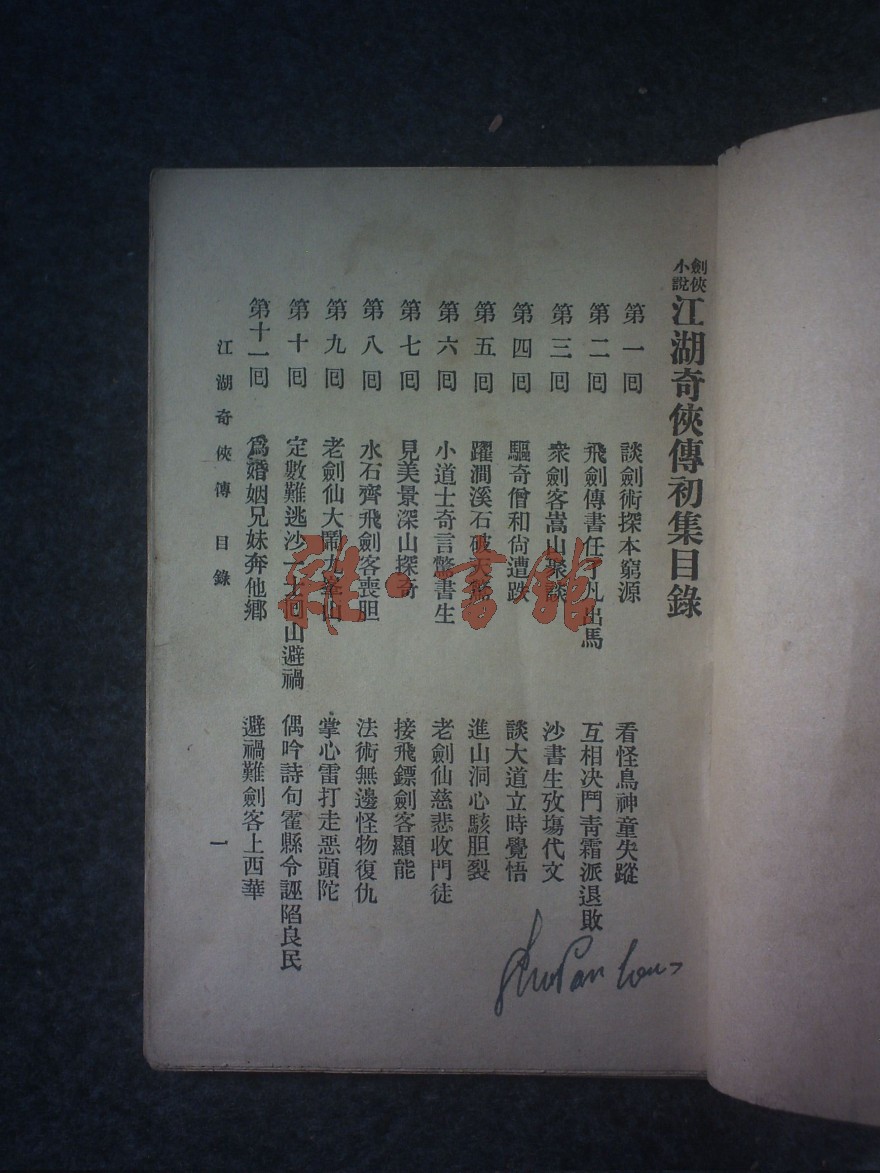 劍俠小說 江湖奇俠傳初集目錄
第一回 談劍術探本窮源 看怪鳥神童失蹤
第二回 飛劍傳書任了凡出馬 互相决鬥靑霜派退敗
第三回 衆劍客嵩山聚談 沙書生攷塲代文
第四回 驅奇僧和尙遭跌 談大道立時覺悟
第五回 躍澗溪石破天驚 進山洞心駭胆裂
第六回 小道士奇言驚書生 老劍仙慈悲收門徒
第七回 見美景深山探奇 接飛鏢劍客顯能
第八回 水石齊飛劍客喪胆 法術無邊怪物復仇
第九回 老劍仙大鬧九峯山 掌心雷打走惡頭陀
第十回 定數難逃沙十七回山避禍 偶吟詩句霍縣令誣陷良民
第十一回 爲婚姻兄妹奔他鄉 避禍難劍客上西華
江湖奇俠傳 目錄 一
雜·書館